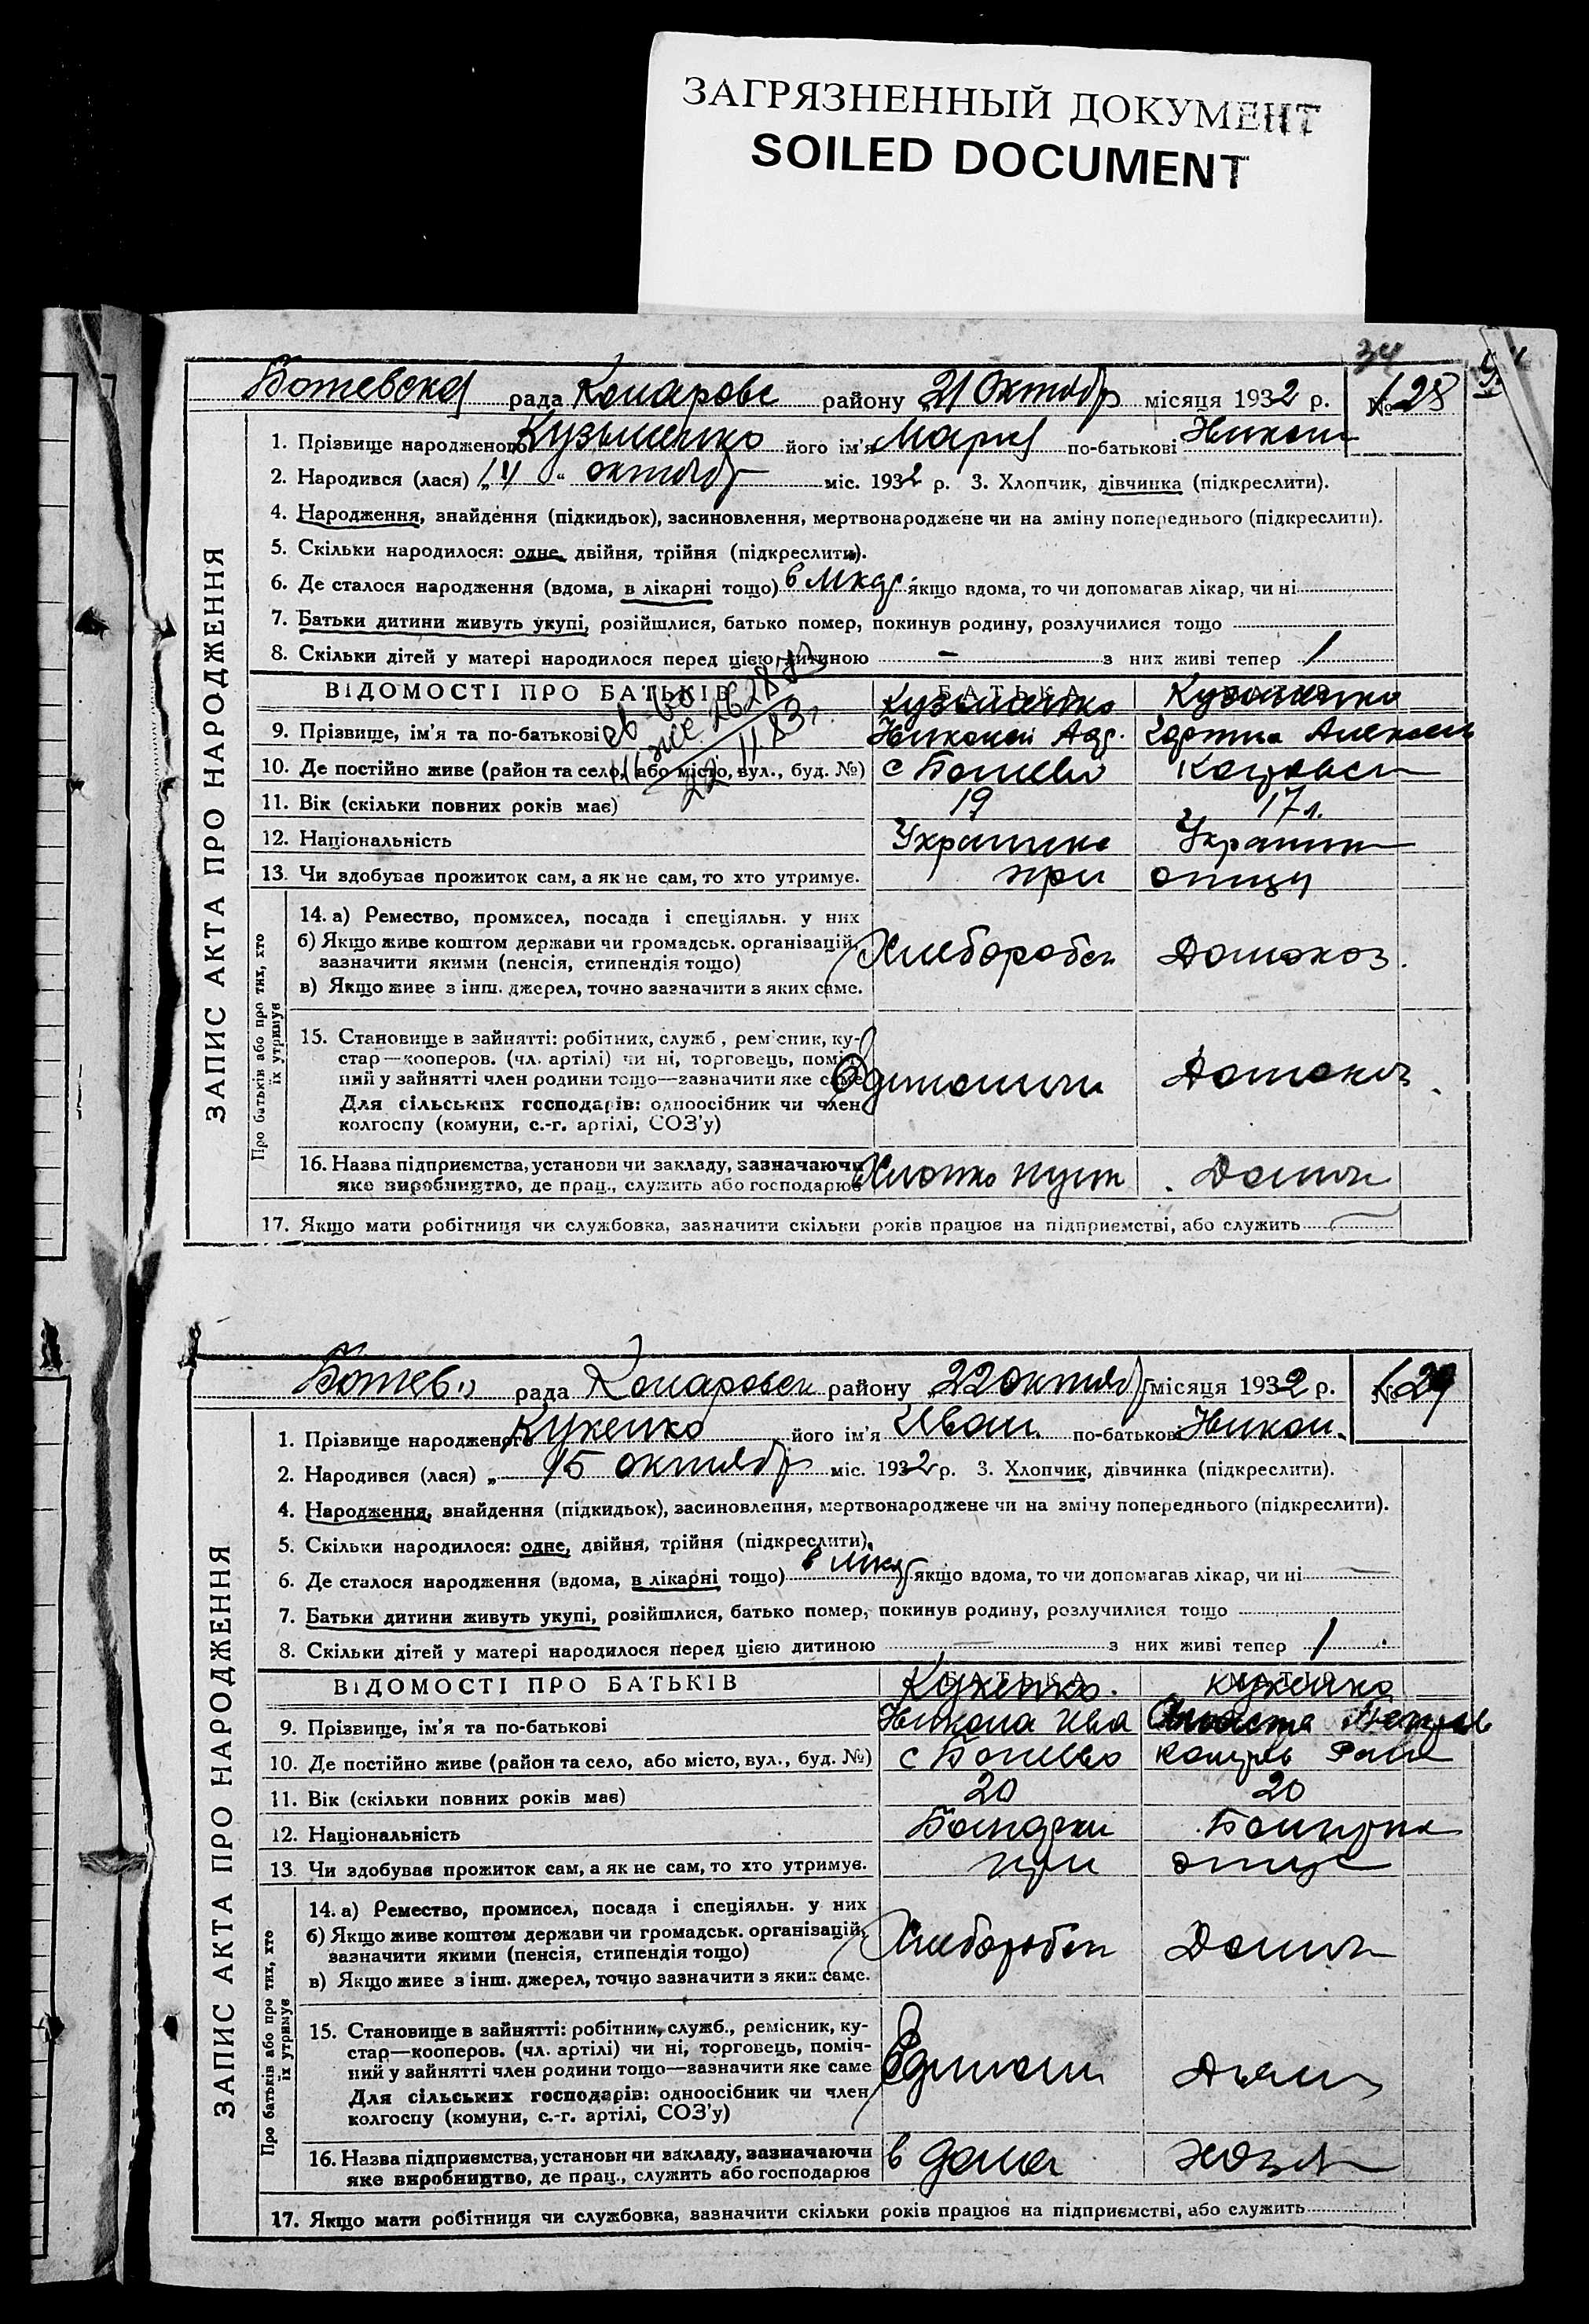 ЗАГРЯЗНЕННЫЙ ДОКУМЕНТ
SOILED DOCUMENT
34
рада район​у 21 Октябр місяця 1932 р. № 128
ЗАПИС АКТА ПРО НАРОДЖЕННЯ
1. Прізвище народженого Кузьменко його ім'я Мария по-батькові Никол
2. Народився (лася) „14“ октябр міс. 1932 р. 3. Хлопчик, дівчинка (підкреслити).
4. Народження, знайдення (підкидьок), засиновлення, мертвонароджене чи на зміну попереднього (підкреслити).
5. Скільки народилося: одне, двійня, трійня (підкреслити).
6. Де сталося народження (вдома, в лікарні тощо) в якщо вдома, то чи допомагав лікар, чи ні
7. Батьки дитини живуть укупі, розійшлися, батько помер, покинув родину, розлучилися тощо
8. Скільки дітей у матері народилося перед цією дитиною – з них живі тепер 1
ВІДОМОСТІ ПРО БАТЬКІВ БАТЬКА МАТІР
Кузьменко Кузьменко
9. Прізвище, ім'я та по-батькові Николай
10. Де постійно живе (район та село, або місто, вул., буд. №) с Ботево
11. Вік (скільки повних років має) 19 17 л.
12. Національність Украинец Украинк
13. Чи здобував прожиток сам, а як не сам, то хто утримує. при отцу
Про батьків або про тих, хто їх утримує
14. а) Ремество, промисел, посада і спеціяльн. у них
б) Якщо живе коштом держави чи громадськ. організацій, зазначити якими (пенсія, стипендія тощо)
в) Якщо живе з інш. джерел, точно зазначити з яких саме.
Хлебороб Домохоз.
15. Становище в зайнятті: робітник, служб., ремісник, ку-
стар—кооперов. (чл. артілі) чи ні, торговець, поміч-
ний у зайнятті член родини тощо—зазначити яке саме
Для сільських господарів: одноосібник чи член
колгоспу (комуни, с.-г. артілі, СОЗ'у)
Домохоз
16. Назва підприємства, установи чи закладу, зазначаючи
яке виробництво, де прац., служить або господарює
17. Якщо мати робітниця чи службовка, зазначити скільки років працює на підприємстві, або служить
рада району 22 октябр місяця 1932 р. № 129
ЗАПИС АКТА ПРО НАРОДЖЕННЯ
1. Прізвище народженого Куженко його ім'я Иван по-батькові Никол.
2. Народився (лася) „ 15 октябр міс. 1932 р. 3. Хлопчик, дівчинка (підкреслити).
4. Народження, знайдення (підкидьок), засиновлення, мертвонароджене чи на зміну попереднього (підкреслити).
5. Скільки народилося: одне, двійня, трійня (підкреслити).
6. Де сталося народження (вдома, в лікарні тощо) в якщо вдома, то чи допомагав лікар, чи ні —
7. Батьки дитини живуть укупі, розійшлися, батько помер, покинув родину, розлучилися тощо
8. Скільки дітей у матері народилося перед цією дитиною — з них живі тепер 1
ВІДОМОСТІ ПРО БАТЬКІВ БАТЬКА МАТІР
Куженко Куженко
9. Прізвище, ім'я та по-батькові Никола Ива
10. Де постійно живе (район та село, або місто, вул., буд. №) с Ботево
11. Вік (скільки повних років має) 20 20
12. Національність
13. Чи здобував прожиток сам, а як не сам, то хто утримує. при отце
Про батьків або про тих, хто їх утримує
14. а) Ремество, промисел, посада і спеціяльн. у них
б) Якщо живе коштом держави чи громадськ. організацій, зазначити якими (пенсія, стипендія тощо)
в) Якщо живе з інш. джерел, точно зазначити з яких саме.
Хлебороб
15. Становище в зайнятті: робітник, служб., ремісник, ку-
стар—кооперов. (чл. артілі) чи ні, торговець, поміч-
ний у зайнятті член родини тощо—зазначити яке саме
Для сільських господарів: одноосібник чи член
колгоспу (комуни, с.-г. артілі, СОЗ'у)
16. Назва підприємства, установи чи закладу, зазначаючи
яке виробництво, де прац., служить або господарює
в дома
17. Якщо мати робітниця чи службовка, зазначити скільки років працює на підприємстві, або служить